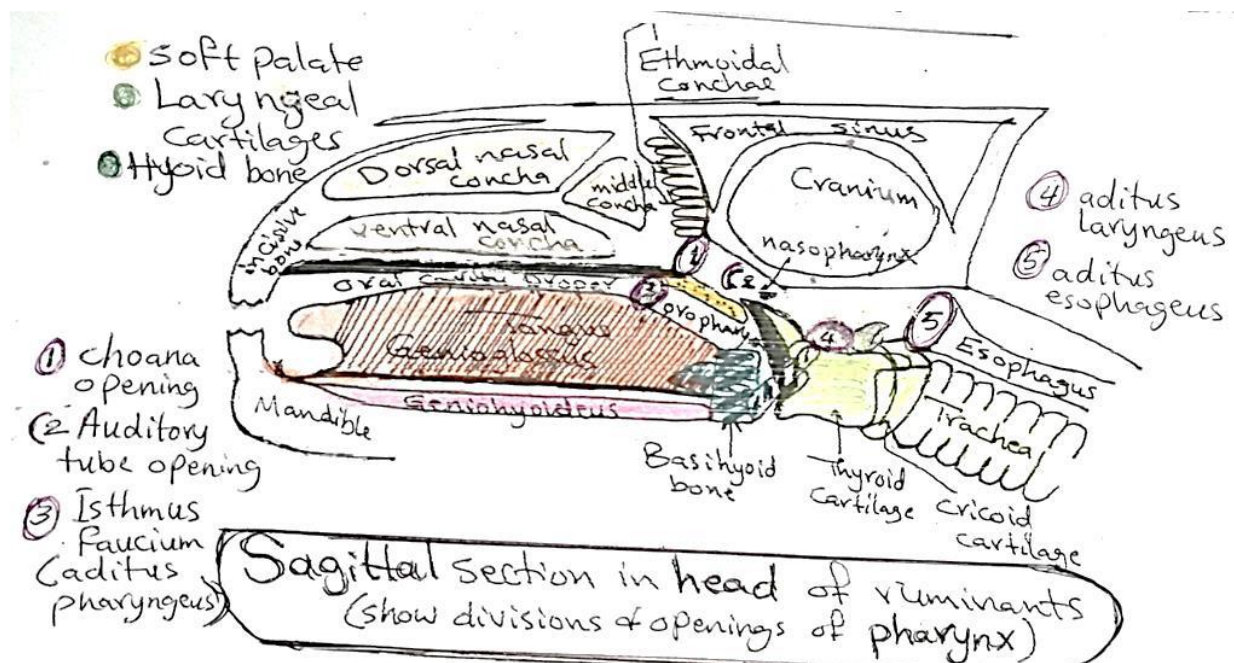 soft palate
Laryngeal
cartilages
Hyoid bone
Ethmoidal
conchae
Frontal sinus
Dorsal nasal
concha
middle
concha
Cranium
ventral nasal
concha
incisive
bone
nasopharynx
oral cavity proper
oropharynx
Tongue
Genioglossus
Geniohyoideus
Mandible
Esophagus
Trachea
Basihyoid
bone
Thyroid
cartilage
cricoid
cartilage
1
(2
3
4
5
4 aditus
laryngeus
5 aditus
esophageus
1 choana
opening
(2 Auditory
tube opening
3 Isthmus
faucium
(aditus
pharyngeus)
Sagittal section in head of ruminants
(show divisions & openings of pharynx)